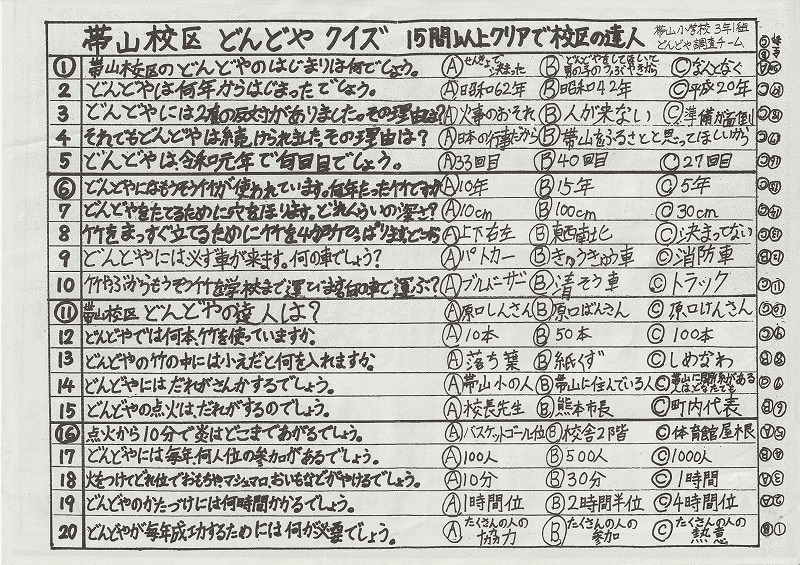 帯山校区 どんどや クイズ 15問以上クリアで校区の達人 帯山小学校 3年1組 どんどや調査チーム
① 帯山校区のどんどやのはじまりは何でしょう。 Ⓐせんきょで決まった Ⓑどんどやをしてほしいと男の子のつぶやきから Ⓒなんとなく
2 どんどやは何年からはじまったでしょう。 Ⓐ昭和62年 Ⓑ昭和42年 Ⓒ平成20年
3 どんどやには2度の反対がありました。その理由は? Ⓐ火事のおそれ Ⓑ人が来ない Ⓒ準備が面倒
4 それでもどんどやは続けられました。その理由は? Ⓐ日本の行事だから Ⓑ帯山をふるさとと思ってほしいから
5 どんどやは、令和元年で何回目でしょう。 Ⓐ33回目 Ⓑ40回目 Ⓒ27回目
⑥ どんどやにはもうそう竹が使われています。何年たった竹ですか Ⓐ10年 Ⓑ15年 Ⓒ5年
7 どんどやをたてるために穴をほります。どれくらいの深さ? Ⓐ10cm Ⓑ100cm Ⓒ30cm
8 竹をまっすぐ立てるために竹を4か所でひっぱります。どこから Ⓐ上下右左 Ⓑ東西南北 Ⓒ決まってない
9 どんどやには必ず車が来ます。何の車でしょう? Ⓐパトカー Ⓑきゅうきゅう車 Ⓒ消防車
10 竹やぶからもうそう竹を学校まで運びます。何の車で運ぶ? Ⓐブルドーザー Ⓑ清そう車 Ⓒトラック
⑪ 帯山校区どんどやの達人は? Ⓐ原口しんさん Ⓑ原口ばんさん Ⓒ原口けんさん
12 どんどやでは何本、竹を使っていますか。 Ⓐ10本 Ⓑ50本 Ⓒ100本
13 どんどやの竹の中には小えだと何を入れますか。 Ⓐ落ち葉 Ⓑ紙くず Ⓒしめなわ
14 どんどやにはだれがさんかするでしょう。 Ⓐ帯山小の人 Ⓑ帯山に住んでいる人 Ⓒ帯山に関係がある人はどなたでも
15 どんどやの点火は、だれがするのでしょう。 Ⓐ校長先生 Ⓑ熊本市長 Ⓒ町内代表
⑯ 点火から10分で炎はどこまであがるでしょう。 Ⓐバスケットゴール位 Ⓑ校舎2階 Ⓒ体育館屋根
17 どんどやには毎年、何人位の参加があるでしょう。 Ⓐ100人 Ⓑ500人 Ⓒ1000人
18 火をつけてどれ位でおもちやマシュマロ、おいもなどがやけるでしょう。 Ⓐ10分 Ⓑ30分 Ⓒ1時間
19 どんどやのかたづけには何時間かかるでしょう。 Ⓐ1時間位 Ⓑ2時間半位 Ⓒ4時間位
20 どんどやが毎年成功するためには何が必要でしょう。 Ⓐたくさんの人の協力 Ⓑたくさんの人の参加 Ⓒたくさんの人の熱意